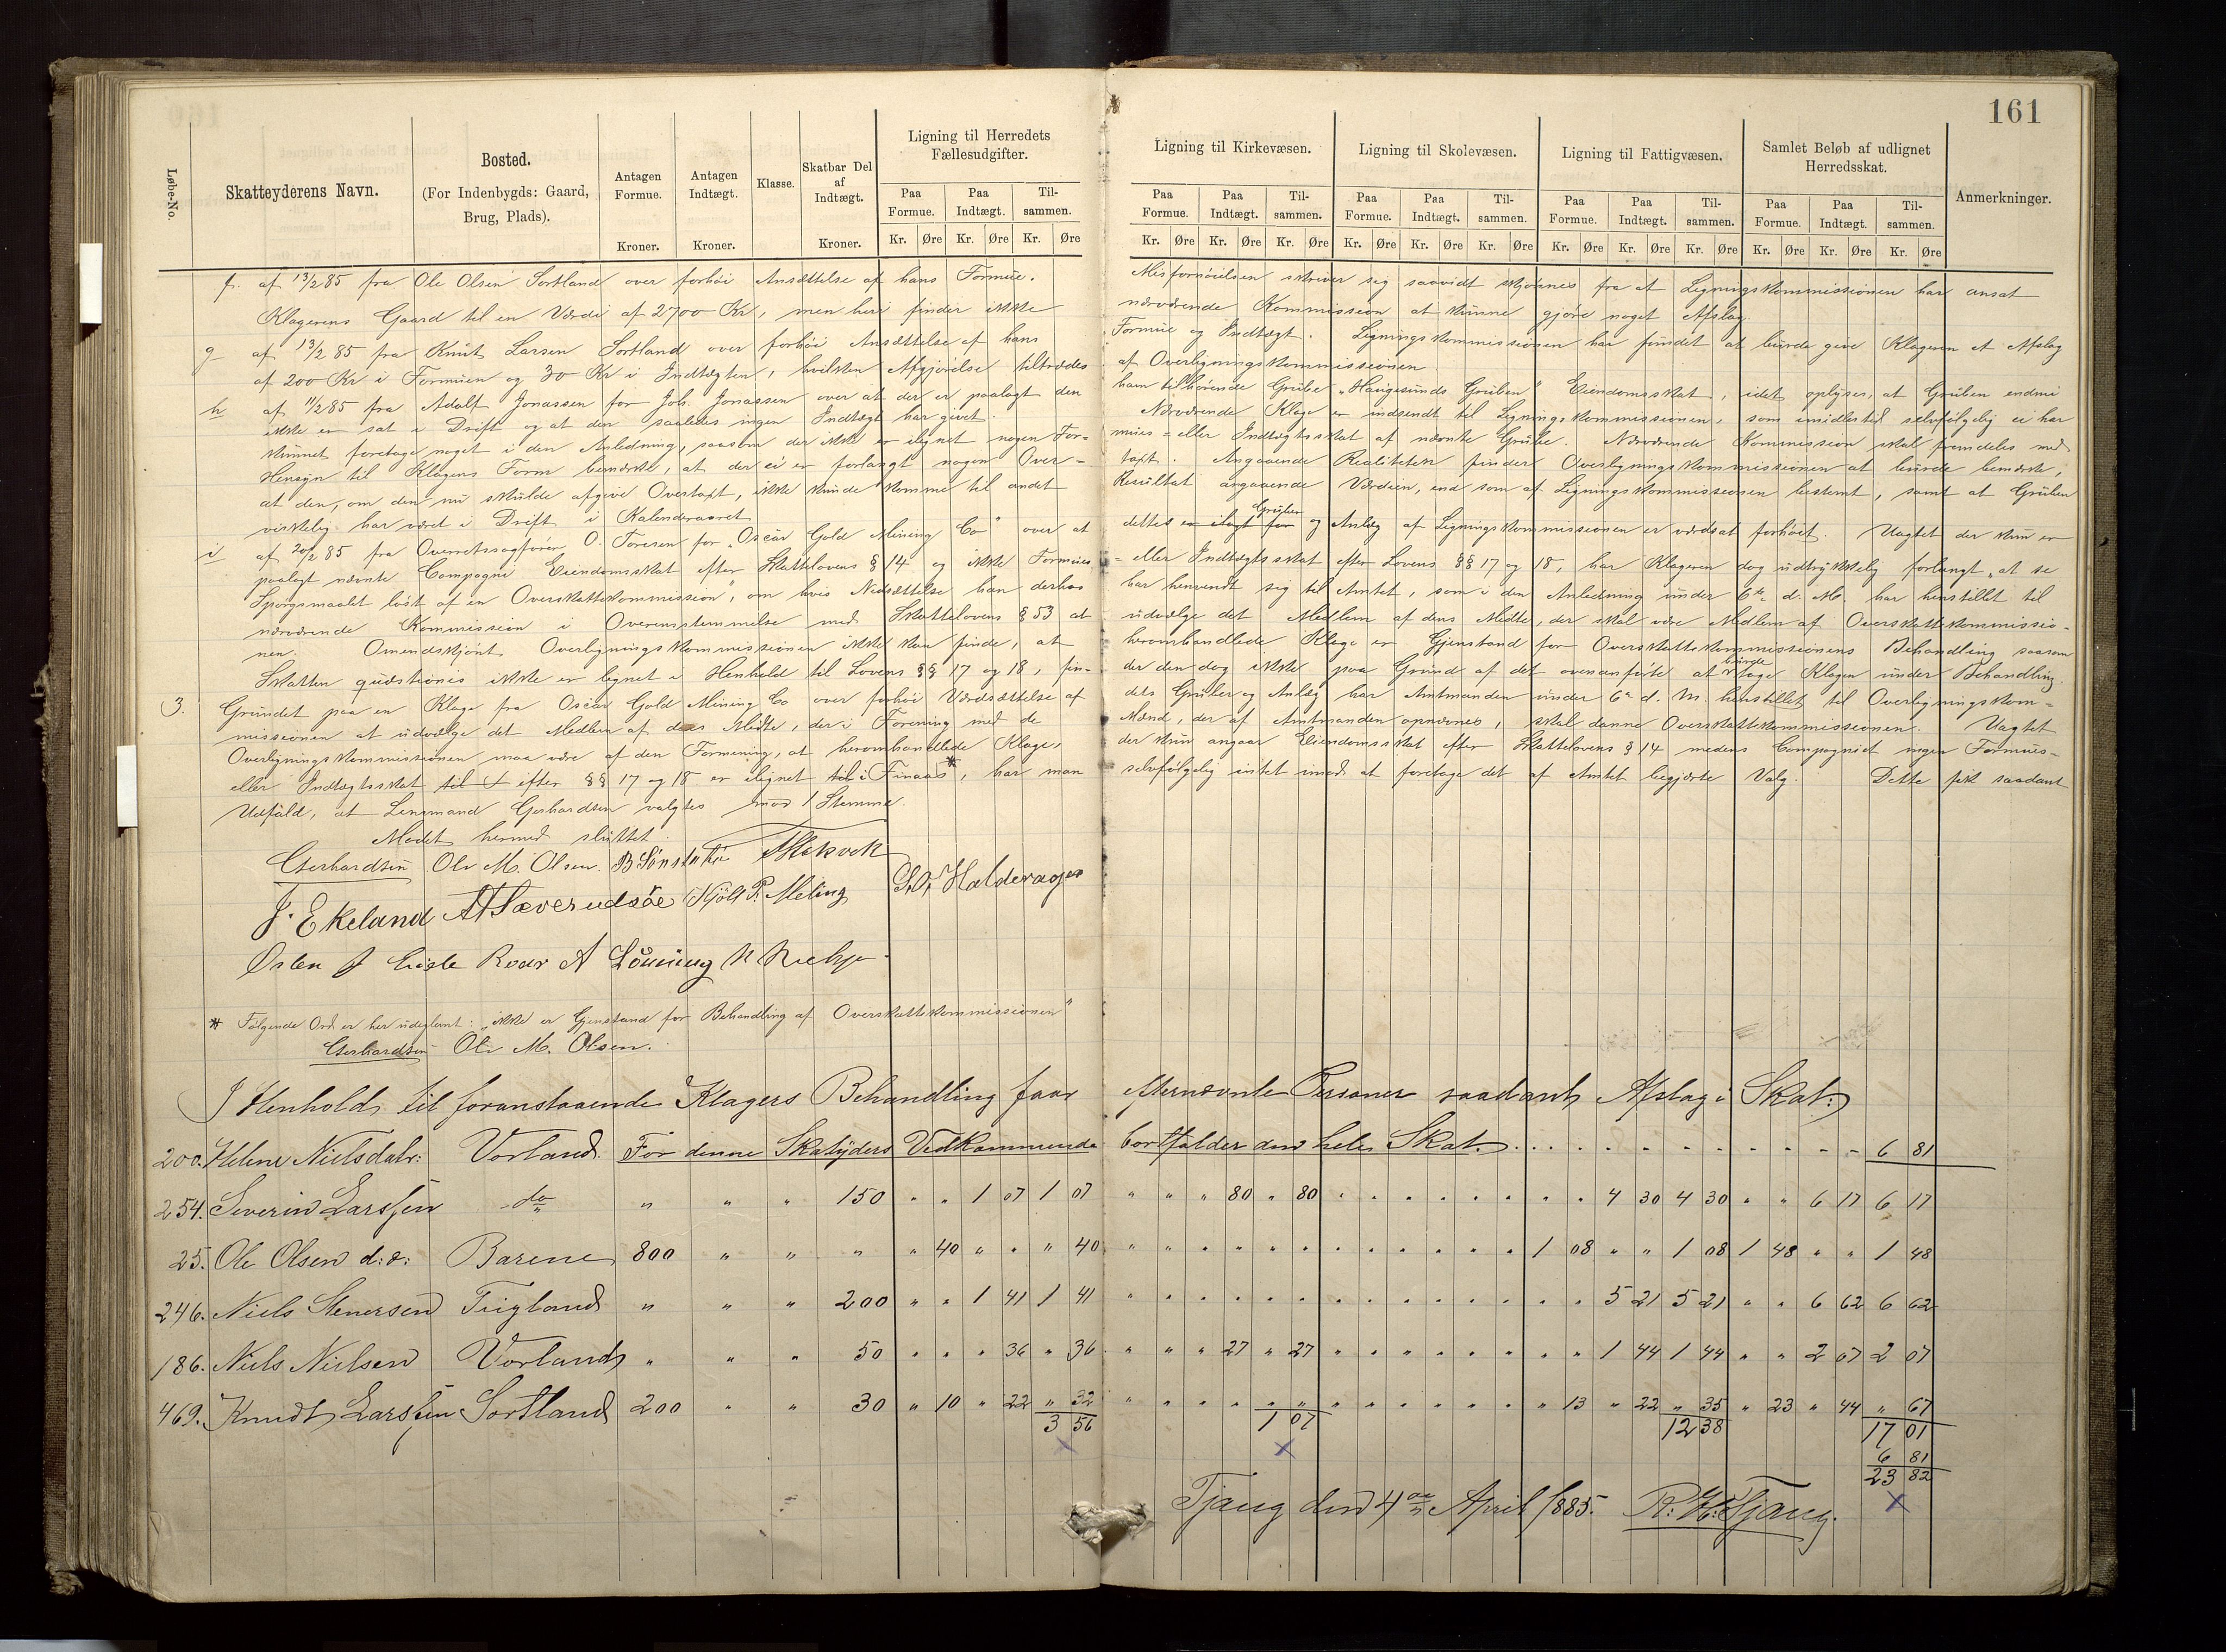 161
Løbe-No. Skatteyderens Navn. Bosted. (For Indenbygds: Gaard, Brug, Plads). Antagen Formue. Kroner. Antagen Indtægt. Kroner. Klasse. Skatbar Del af Indtægt. Kroner. Ligning til Herredets Fællesudgifter. Ligning til Kirkevæsen. Ligning til Skolevæsen. Ligning til Fattigvæsen. Samlet Beløb af udlignet Herredsskat. Anmerkninger.
Paa Formue. Paa Indtægt. Tilsammen. Paa Formue. Paa Indtægt. Tilsammen. Paa Formue. Paa Indtægt. Tilsammen. Paa Formue. Paa Indtægt. Tilsammen. Paa Formue. Paa Indtægt. Tilsammen.
Kr. Øre Kr. Øre Kr. Øre Kr. Øre Kr. Øre Kr. Øre Kr. Øre Kr. Øre Kr. Øre Kr. Øre Kr. Øre Kr. Øre Kr. Øre Kr. Øre Kr. Øre
f. af 13/2 85 fra Ole Olsen Sortland over forhöi Ansættelse af hans Formue. Misfornöielsen skriver sig saavidt skjönnes fra at Ligningskommissionen har ansat
Klagerens Gaard til en Værdi af 2700 Kr, men heri finder ikke nærværende Kommission at kunne gjöre noget Afslag.
g af 13/2 85 fra Knut Larsen Sortland over forhöi Ansættelse af hans Formue og Indtægt. Ligningskommissionen har fundet at burde give Klageren et Afslag
af 200 Kr i Formuen og 30 Kr i Indtægten, hvilken Afgjörelse tiltrædes af Overligningskommissionen
h af 11/2 85 fra Adolf Jonassen for Joh. Jonassen over at der er paalagt den ham tilhörende Grube "Haugesunds Gruben" Eiendomsskat, idet oplyses, at Gruben endnu
ikke er sat i Drift og at den saaledes ingen Indtægt har givet. Nærværende Klage er indsendt til Ligningskommissionen, som imidlertid selvfölgelig ei har
kunnet foretage noget i den Anledning, saasom der ikke er ilignet nogen Formues- eller Indtægtsskat af nævnte Grube. Nærværende Kommission skal fremdeles med
Hensyn til Klagens Form bemærke, at der ei er forlangt nogen Overtaxt. Angaaende Realiteten finder Overligningskommissionen at burde bemærke,
at den, om den nu skulde afgive Overtaxt, ikke kunde komme til andet Resultat angaaende Værdien, end som af Ligningskommissionen bestemt, samt at Gruben
virkelig har været i Drift i Kalenderaaret
i af 20/2 85 fra Overretssagförer O. Foresen for "Oscar Gold Mining Co" over at dettes Gruber og Anlæg af Ligningskommissionen er værdsat forhöit. Uagtet der kun er
paalagt nævnte Compagni Eiendomsskat efter Skattelovens § 14 og ikke Formues- eller Indtægtsskat efter Lovens §§ 17 og 18, har Klageren dog udtrykkelig forlangt "at se
Spörgsmaalet löst af en Overskattekommission", om hvis Nedsættelse han derhos har henvendt sig til Amtet, som i den Anledning under 6te d. M. har henstillet til
nærværende Kommission i Overensstemmelse med Skattelovens § 53 at udvælge det Medlem af dens Midte, der skal være Medlem af Overskattekommissio-
nen. Omendskjönt Overligningskommissionen ikke kan finde, at heromhandlede Klage er Gjenstand for Overskattekommissionens Behandling saasom
Skatten quæstionis ikke er lignet i Henhold til Lovens §§ 17 og 18, fin- der den dog ikke paa Grund af det ovenanförte at burde tage Klagen under Behandling.
3. Grundet paa en Klage fra Oscar Gold Mining Co over forhöi Værdsættelse af dets Gruber og Anlæg har Amtmanden under 6te d. M. henstillet til Overligningskom-
missionen at udvælge det Medlem af dens Midte, der i Forening med de Mænd, der af Amtmanden opnævnes, skal danne Overskattekommissionen. Uagtet
Overligningskommissionen maa være af den Formening, at heromhandlede Klage, der kun angaar Eiendomsskat efter Skattelovens § 14 medens Compagniet ingen Formues-
eller Indtægtsskat efter §§ 17 og 18 er ilignet i Finaas*, har man selvfölgelig intet imod at foretage det af Amtet begjærte Valg. Dette fik saadant
Udfald, at Lensmand Gerhardsen valgtes mod 1 Stemme.
Mödet hermed sluttet.
Gerhardsen Ole M. Olsen.
J. Ekeland P. Meling
Osten
* Fölgende Ord er her udeglemt: "ikke er Gjenstand for Behandling af Overskattekommissionen"
Gerhardsen Ole M. Olsen.
I Henhold til foranstaaende Klagers Behandling faar efternævnte Personer saadant Afslag i Skat:
200. Helene Nielsdatr: Vorland. For denne Skatyders Vedkommende bortfalder den hele Skat. 6 81
254. Severin Larssen do " " " 150 " " 1 07 1 07 " " " 80 " 80 " " " " " " " " 4 30 4 30 " " 6 17 6 17
25. Ole Olsen d:æ: Barene 800 " " " " 40 " " " 40 " " " " " " " " " " " " 1 08 " " 1 08 1 48 " " 1 48
246. Niels Stenersen Tugland " " " 200 " " 1 41 1 41 " " " " " " " " " " " " " " 5 21 5 21 " " 6 62 6 62
186. Niels Nielsen Vorland " " " 50 " " " 36 " 36 " " " 27 " 27 " " " " " " " " 1 44 1 44 " " 2 07 2 07
469. Knudt Larssen Sortland 200 " " 30 " 10 " 22 " 32 " " " " " " " " " " " " " 13 " 22 " 35 " 23 " 44 " 67
3 56 1 07 12 38 17 01
6 81
23 82
Tjang den 4de April 1885. R. H. Tjang.